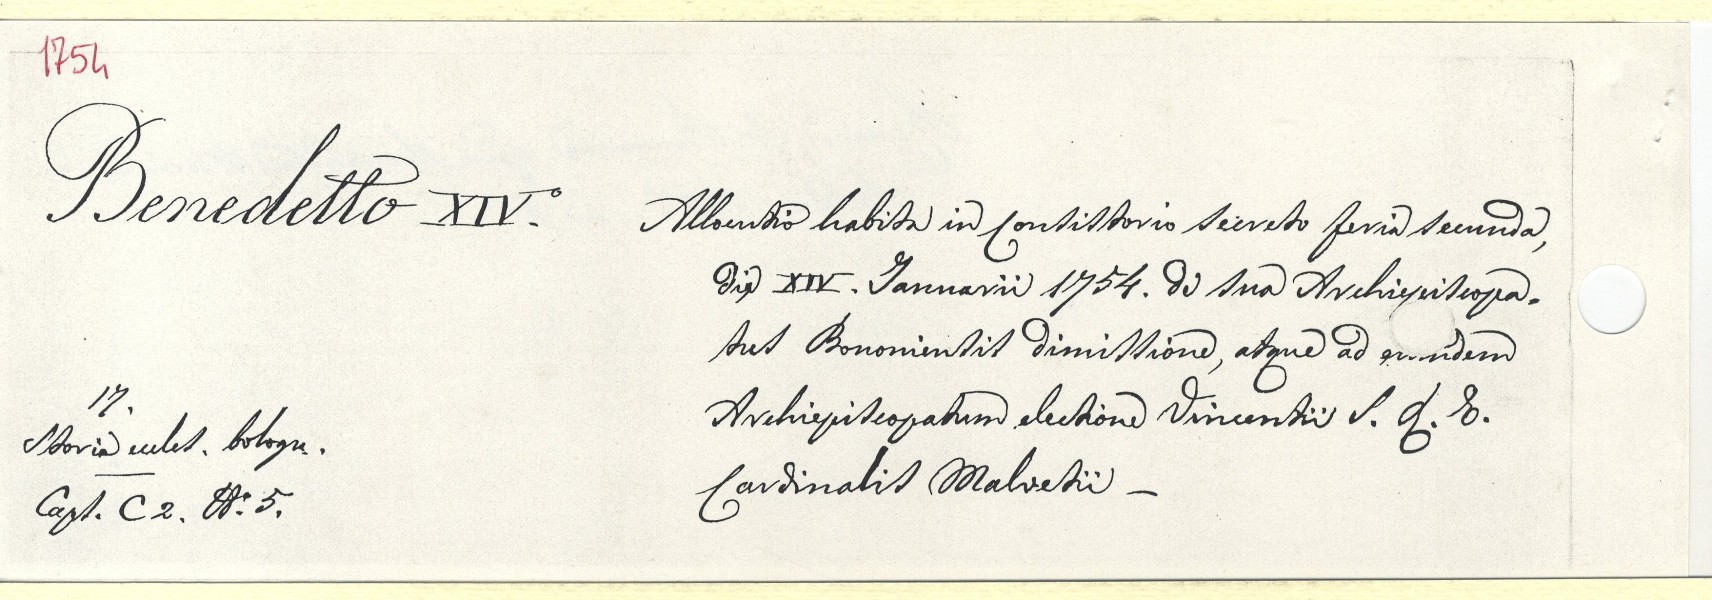 1754
Benedetto XIV.°
Allocutio habita in Consistorio secreto feria secunda,
die XIV. Januarii 1754. de sua Archiepiscopa-
tus Bononiensis dimissione, atque ad eundem
Archiepiscopatum electione Vincentii S. R. E.
Cardinalis Malvetii —
17.
Storia eccles. bologn.
Caps. C 2. N.° 5.